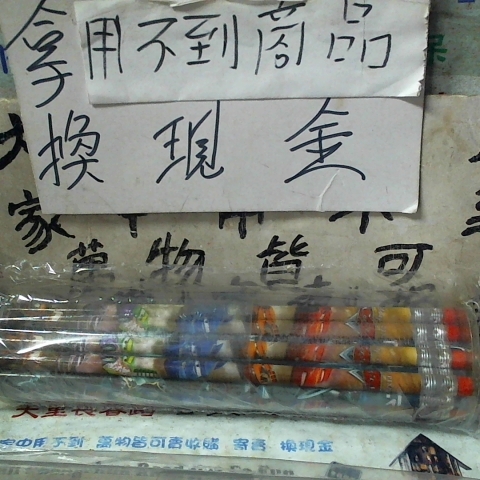 拿用不到商品
換現金
家中用不
萬物皆可
家中用不到 萬物皆可寄收購 寄售 換現金